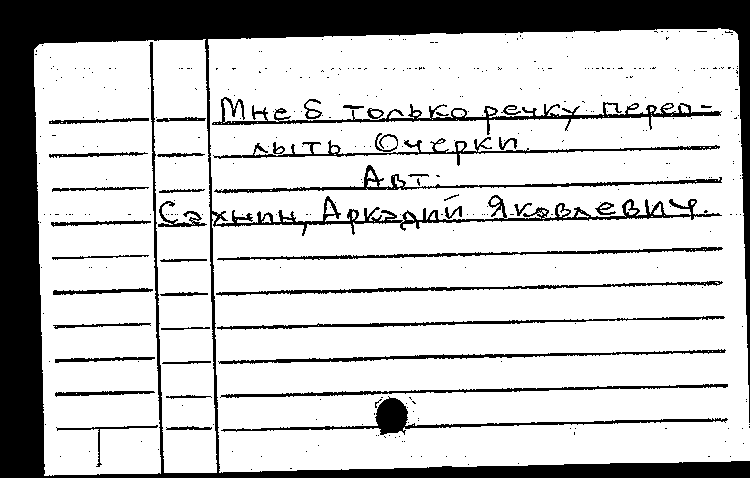 Мне б только речку переп-
лыть Очерки.
Авт:
Сахнин, Аркадий Яковлевич.